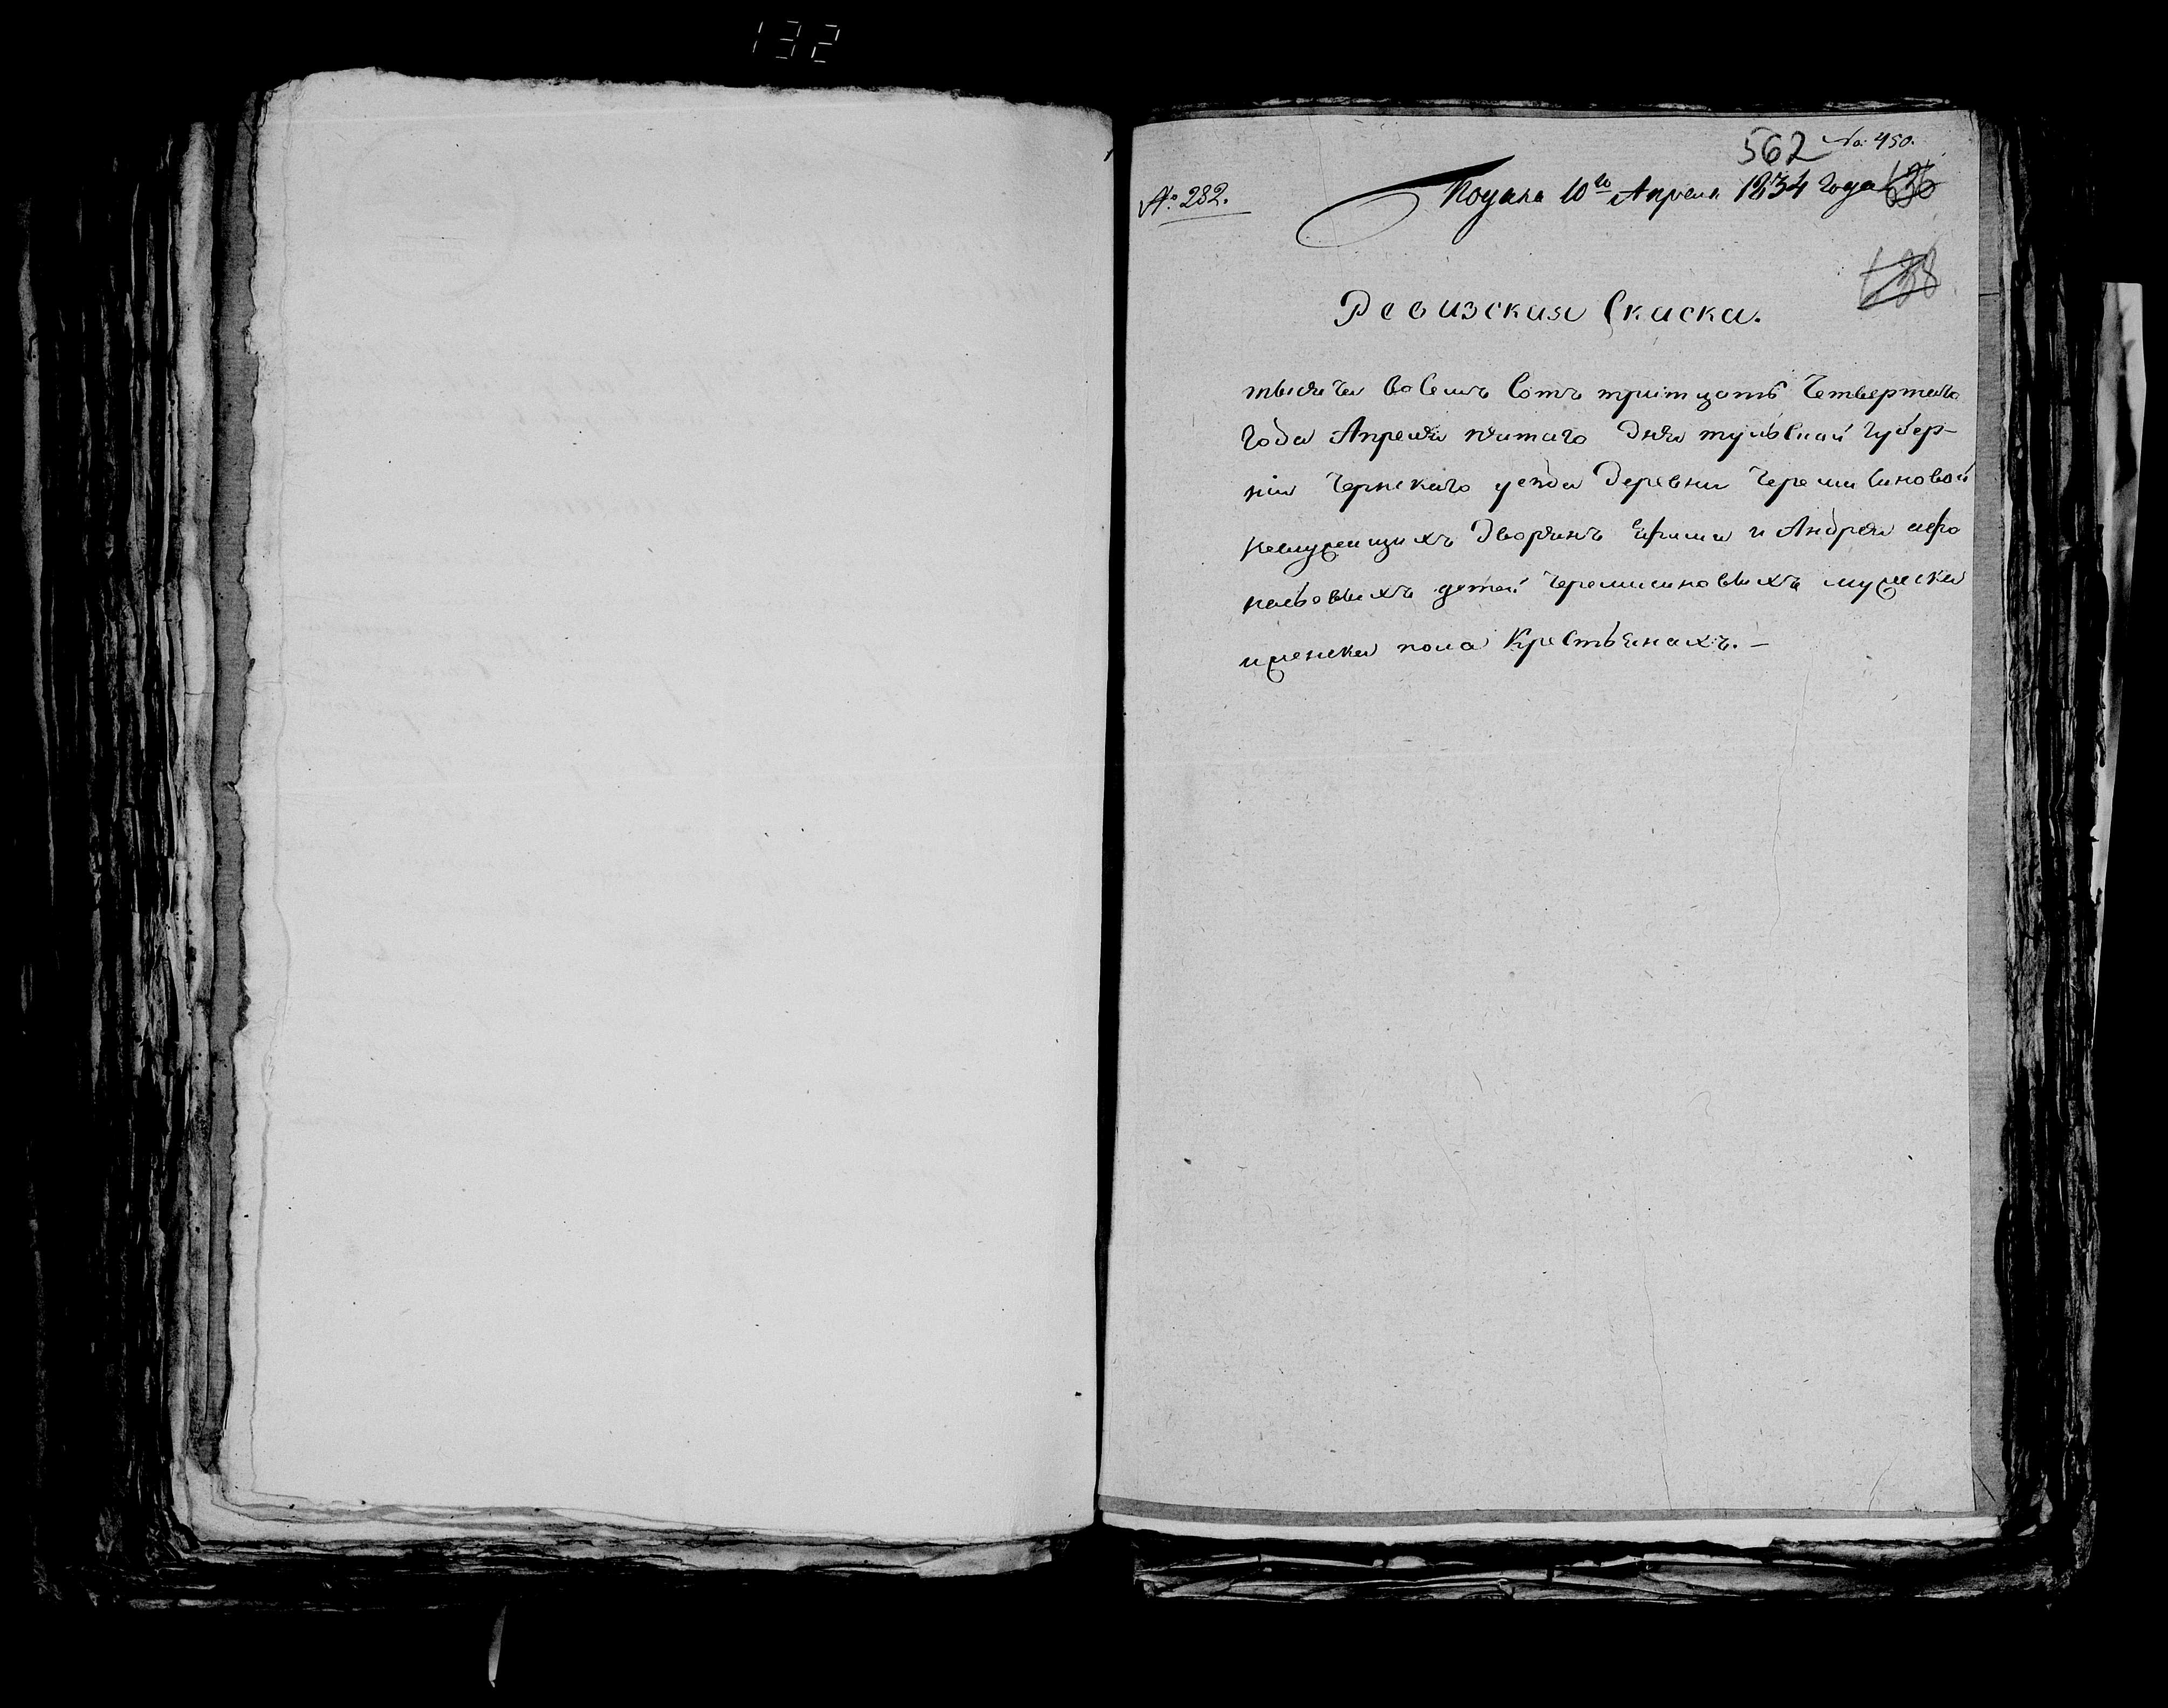 132
562 No: 450.
№ 282.
Подана 10го Апреля 1834 года
Ревизская Скаска.
тысяча восемь сотъ тритцать четвертаго
года Апреля пятаго дня тульской губер-
ніи Чернскаго уезда деревни Черемисиновой
дворянъ Ефима и Андрея
детей Черемисиновыхъ мужеска
и женска пола Крестьянахъ. –